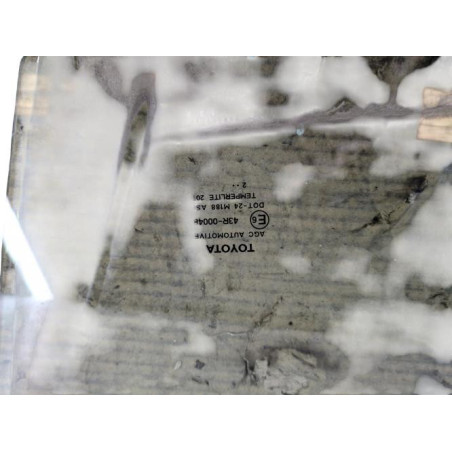 TOYOTA
AGC AUTOMOTIVE
E6 43R-0004
DOT-24 M188 AS
TEMPERLITE 20
2 ··